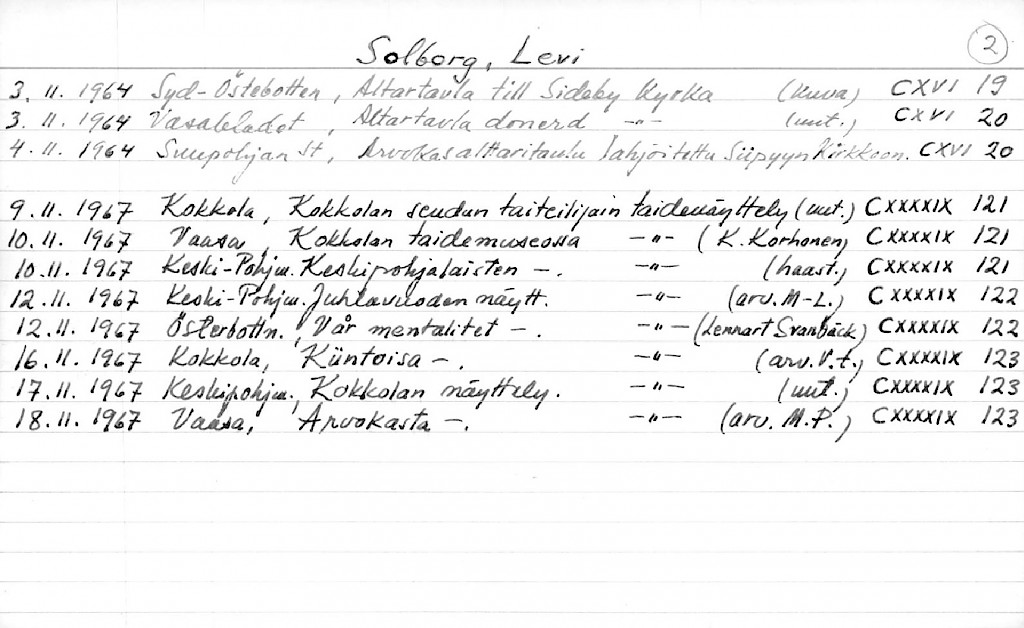 Solborg, Levi 2
3. 11. 1964 Syd-Östebotten, Altartavla till Sideby Kyrka (kuva) CXVI 19
3. 11. 1964 Vasabladet, Altartavla donerd -"- (uut.) CXVI 20
4. 11. 1964 Suupohjan St, Arvokas alttaritaulu lahjoitettu Siipyyn Kirkkoon. CXVI 20
9. 11. 1967 Kokkola, Kokkolan seudun taiteilijain taidenäyttely (uut.) CXXXXIX 121
10. 11. 1967 Vaasa, Kokkolan taidemuseossa -"- (K. Korhonen) CXXXXIX 121
10. 11. 1967 Keski-Pohjm. Keskipohjalaisten -. -"- (haast.) CXXXXIX 121
12. 11. 1967 Keski-Pohjm. Juhlavuoden näytt. -"- (arv. M-L.) CXXXXIX 122
12. 11. 1967 Österbottn., Vår mentalitet -. -"- (Lennart Svanbäck) CXXXXIX 122
16. 11. 1967 Kokkola, Kiintoisa -. -"- (arv. V.t.) CXXXXIX 123
17. 11. 1967 Keskipohjm., Kokkolan näyttely. -"- (uut.) CXXXXIX 123
18. 11. 1967 Vaasa, Arvokasta -. -"- (arv. M.P.) CXXXXIX 123